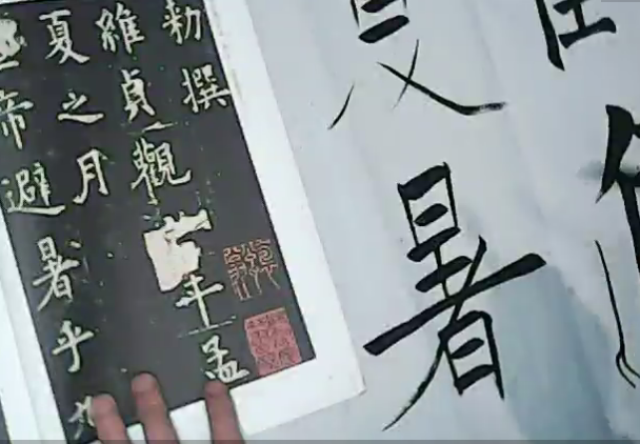 勅撰
維貞觀年孟
夏之月
帝避暑乎
暑